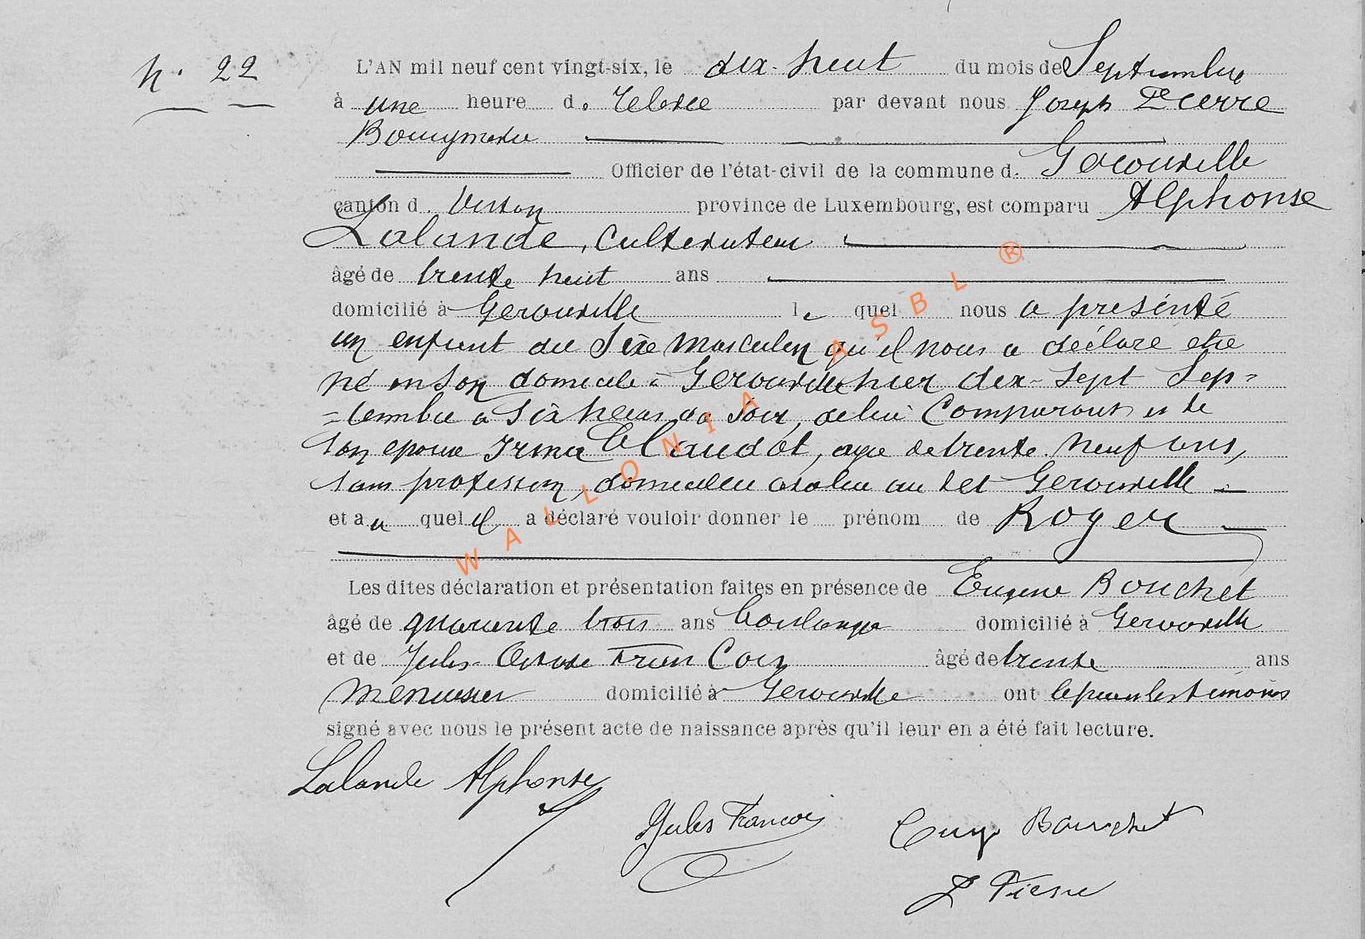 N. 22
L'AN mil neuf cent vingt-six, le dix-huit du mois de Septembre
à une heure d. relevée par devant nous Joseph Pierre
Officier de l'état-civil de la commune d. Gerouville
canton d. Virton province de Luxembourg, est comparu Alphonse
Lalande, Cultivateur
âgé de trente huit ans
domicilié à Gerouville le quel nous a présenté
un enfant du Sexe masculin qu'il nous a déclaré etre
né en son domicile à Gerouville hier dix-sept Sep-
-tembre a six heures du soir, de lui Comparant et de
son epouse Irma Claudot, agée de trente neuf ans,
sans profession, domiciliée au dit Gerouville
et a u quel il a déclaré vouloir donner le prénom de Roger
WALLONIA ASBL ®
Les dites déclaration et présentation faites en présence de Eugene Bouchet
âgé de quarante trois ans boulanger domicilié à Gerouville
et de Jules François âgé de trente ans
menuisier domicilié à Gerouville ont le père et les témoins
signé avec nous le présent acte de naissance après qu'il leur en a été fait lecture.
Lalande Alphonse
Jules François
Bouchet